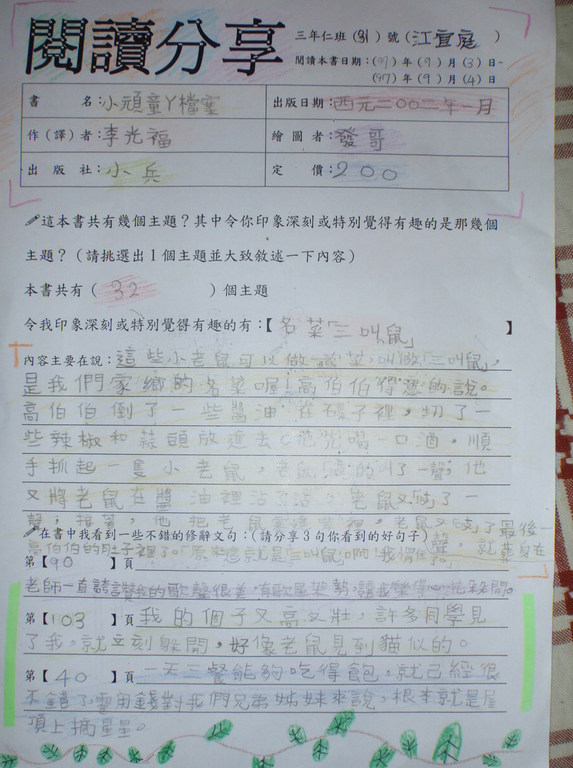 閱讀分享
三年仁班(31)號(江宜庭 )
閱讀本書日期：(97)年(9)月(3)日~
(97)年(9)月(4)日
書 名：小頑童ㄚ檔案 出版日期：西元二00二年一月
作（譯）者：李光福 繪圖者：發哥
出 版 社：小兵 定 價：200
這本書共有幾個主題？其中令你印象深刻或特別覺得有趣的是那幾個
主題？（請挑選出1個主題並大致敘述一下內容）
本書共有（ 32 ）個主題
令我印象深刻或特別覺得有趣的有：【名菜「三叫鼠」 】
內容主要在說：這些小老鼠可以做 菜，叫做「三叫鼠」，
是我們家鄉的名菜喔！高伯伯得意的說。
高伯伯倒了一些醬油在碟子裡，切了一
些辣椒和蒜頭放進去 喝一口酒，順
手抓起一隻小老鼠，老鼠 的叫了一聲；他
又將老鼠在醬油裡沾了 ，老鼠又吱了一
聲；接著，他把老鼠塞進嘴裡，老鼠又吱了最後一
聲，就 在
高伯伯的肚子裡了。「原來這就是三叫鼠啊！」我
在書中我看到一些不錯的修辭文句：（請分享3句你看到的好句子）
第【 90 】頁
老師一直誇讚我的歌聲很美，有歌星架勢，讓我
第【 103 】頁 我的個子又高又壯，許多同學見
了我，就立刻躲開，好像老鼠見到貓似的。
第【 40 】頁 一天三餐能夠吃得飽，就已經很
不錯了，零用錢對我們兄弟姊妹來說，根本就是屋
頂上摘星星。